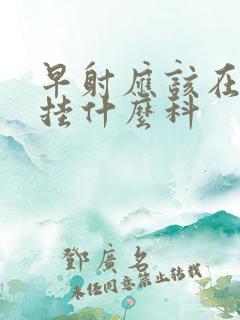 早射應該在
挂什麽科
鄧廣名
未经同意禁止转载